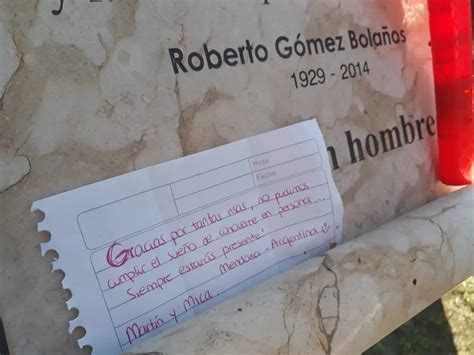 Roberto Gómez Bolaños
1929 - 2014
hombre
Hoja
Fecha
Gracias por tantas risas, no pudimos
cumplir el sueño de conocerte en persona....
Siempre estarás presente!
Mendoza - Argentina
Martín y Mica